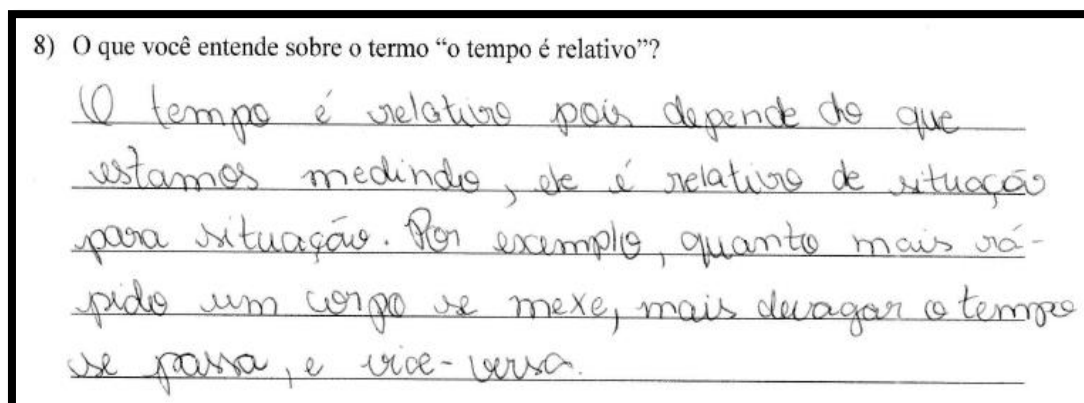 8) O que você entende sobre o termo “o tempo é relativo”?
O tempo é relativo pois depende do que
estamos medindo, ele é relativo de situação
para situação. Por exemplo, quanto mais rá-
pido um corpo se mexe, mais devagar o tempo
se passa, e vice-versa.